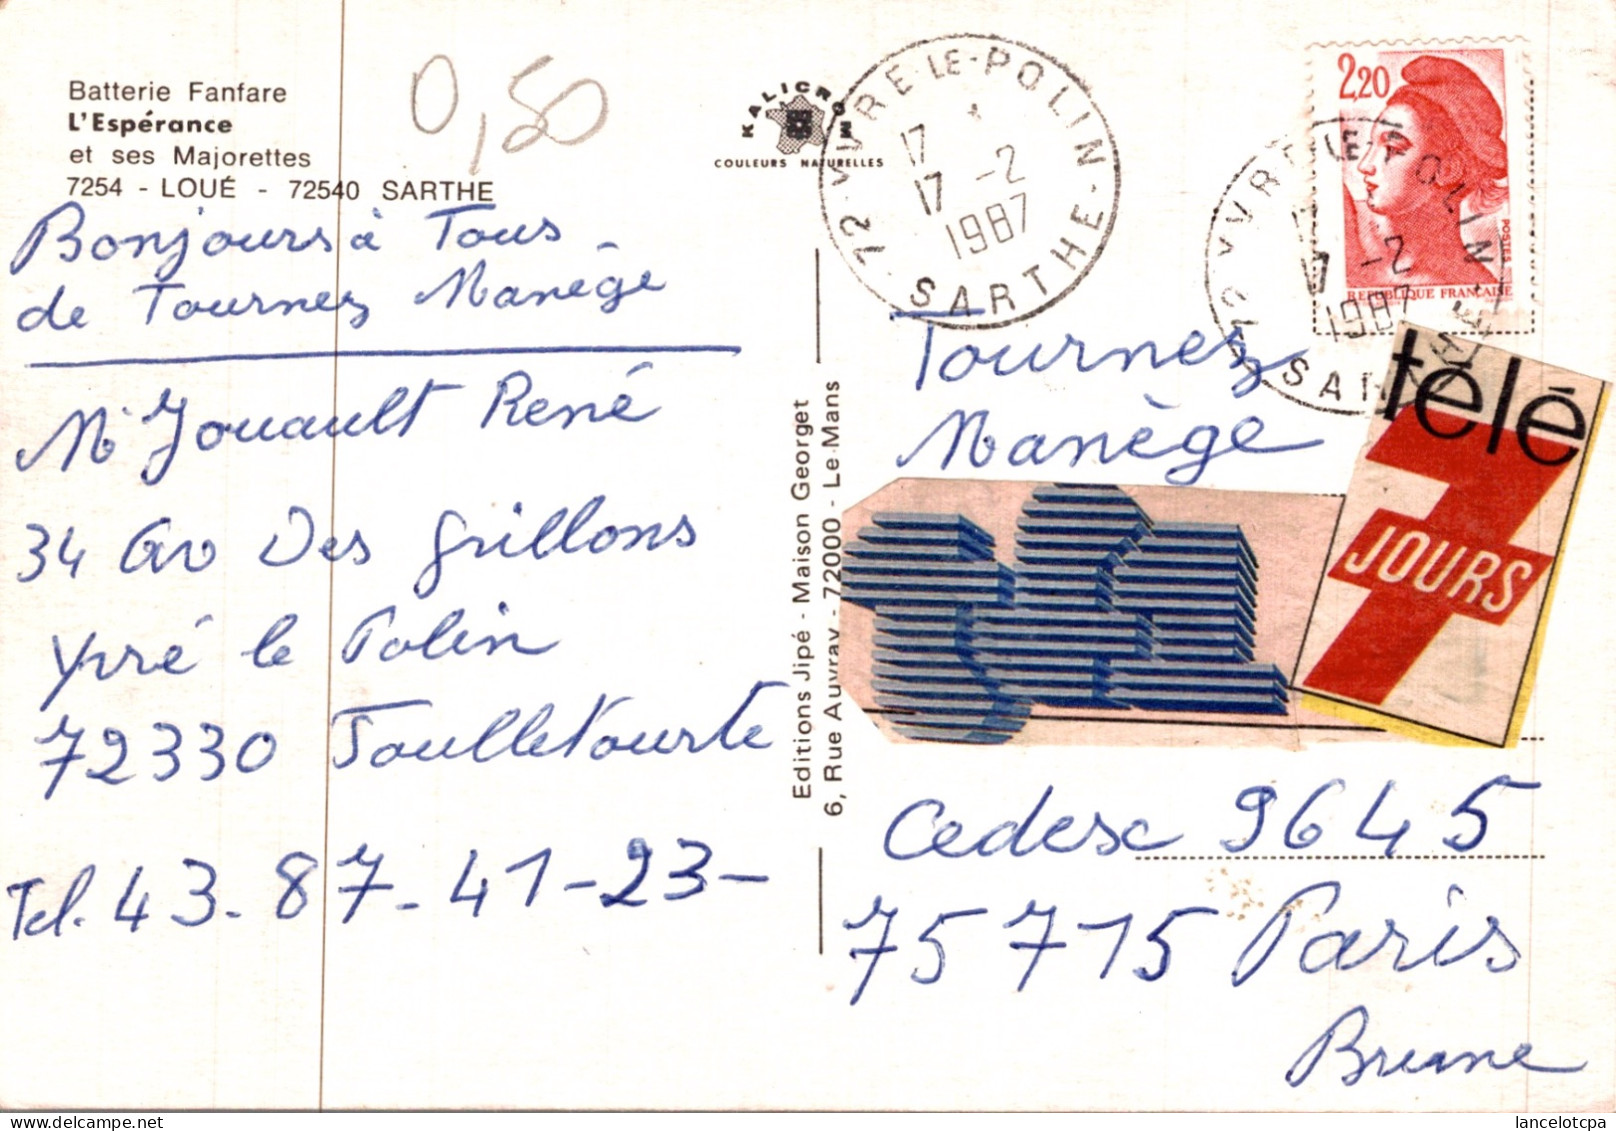 Batterie Fanfare
L'Espérance
et ses Majorettes
7254 - LOUÉ - 72540 SARTHE
0,50
Bonjours à Tous
de Tournez Manège
Mr Jouault René
34 av Des Grillons
Yvré le Polin
72330 Foulletourte
Tel. 43-87-41-23-
KALICROM
COULEURS NATURELLES
Editions Jipé - Maison Georget
6, Rue Auvray - 72000 - Le Mans
72 YVRE-LE-POLIN SARTHE
17
17 -2
1987
2,20
POSTES
REPUBLIQUE FRANÇAISE
72 YVRE-LE-POLIN SARTHE
17
17 -2
1987
Tournez
Manège
télé
7
JOURS
Cedesc 9645
75715 Paris
Brune
lancelotcpa